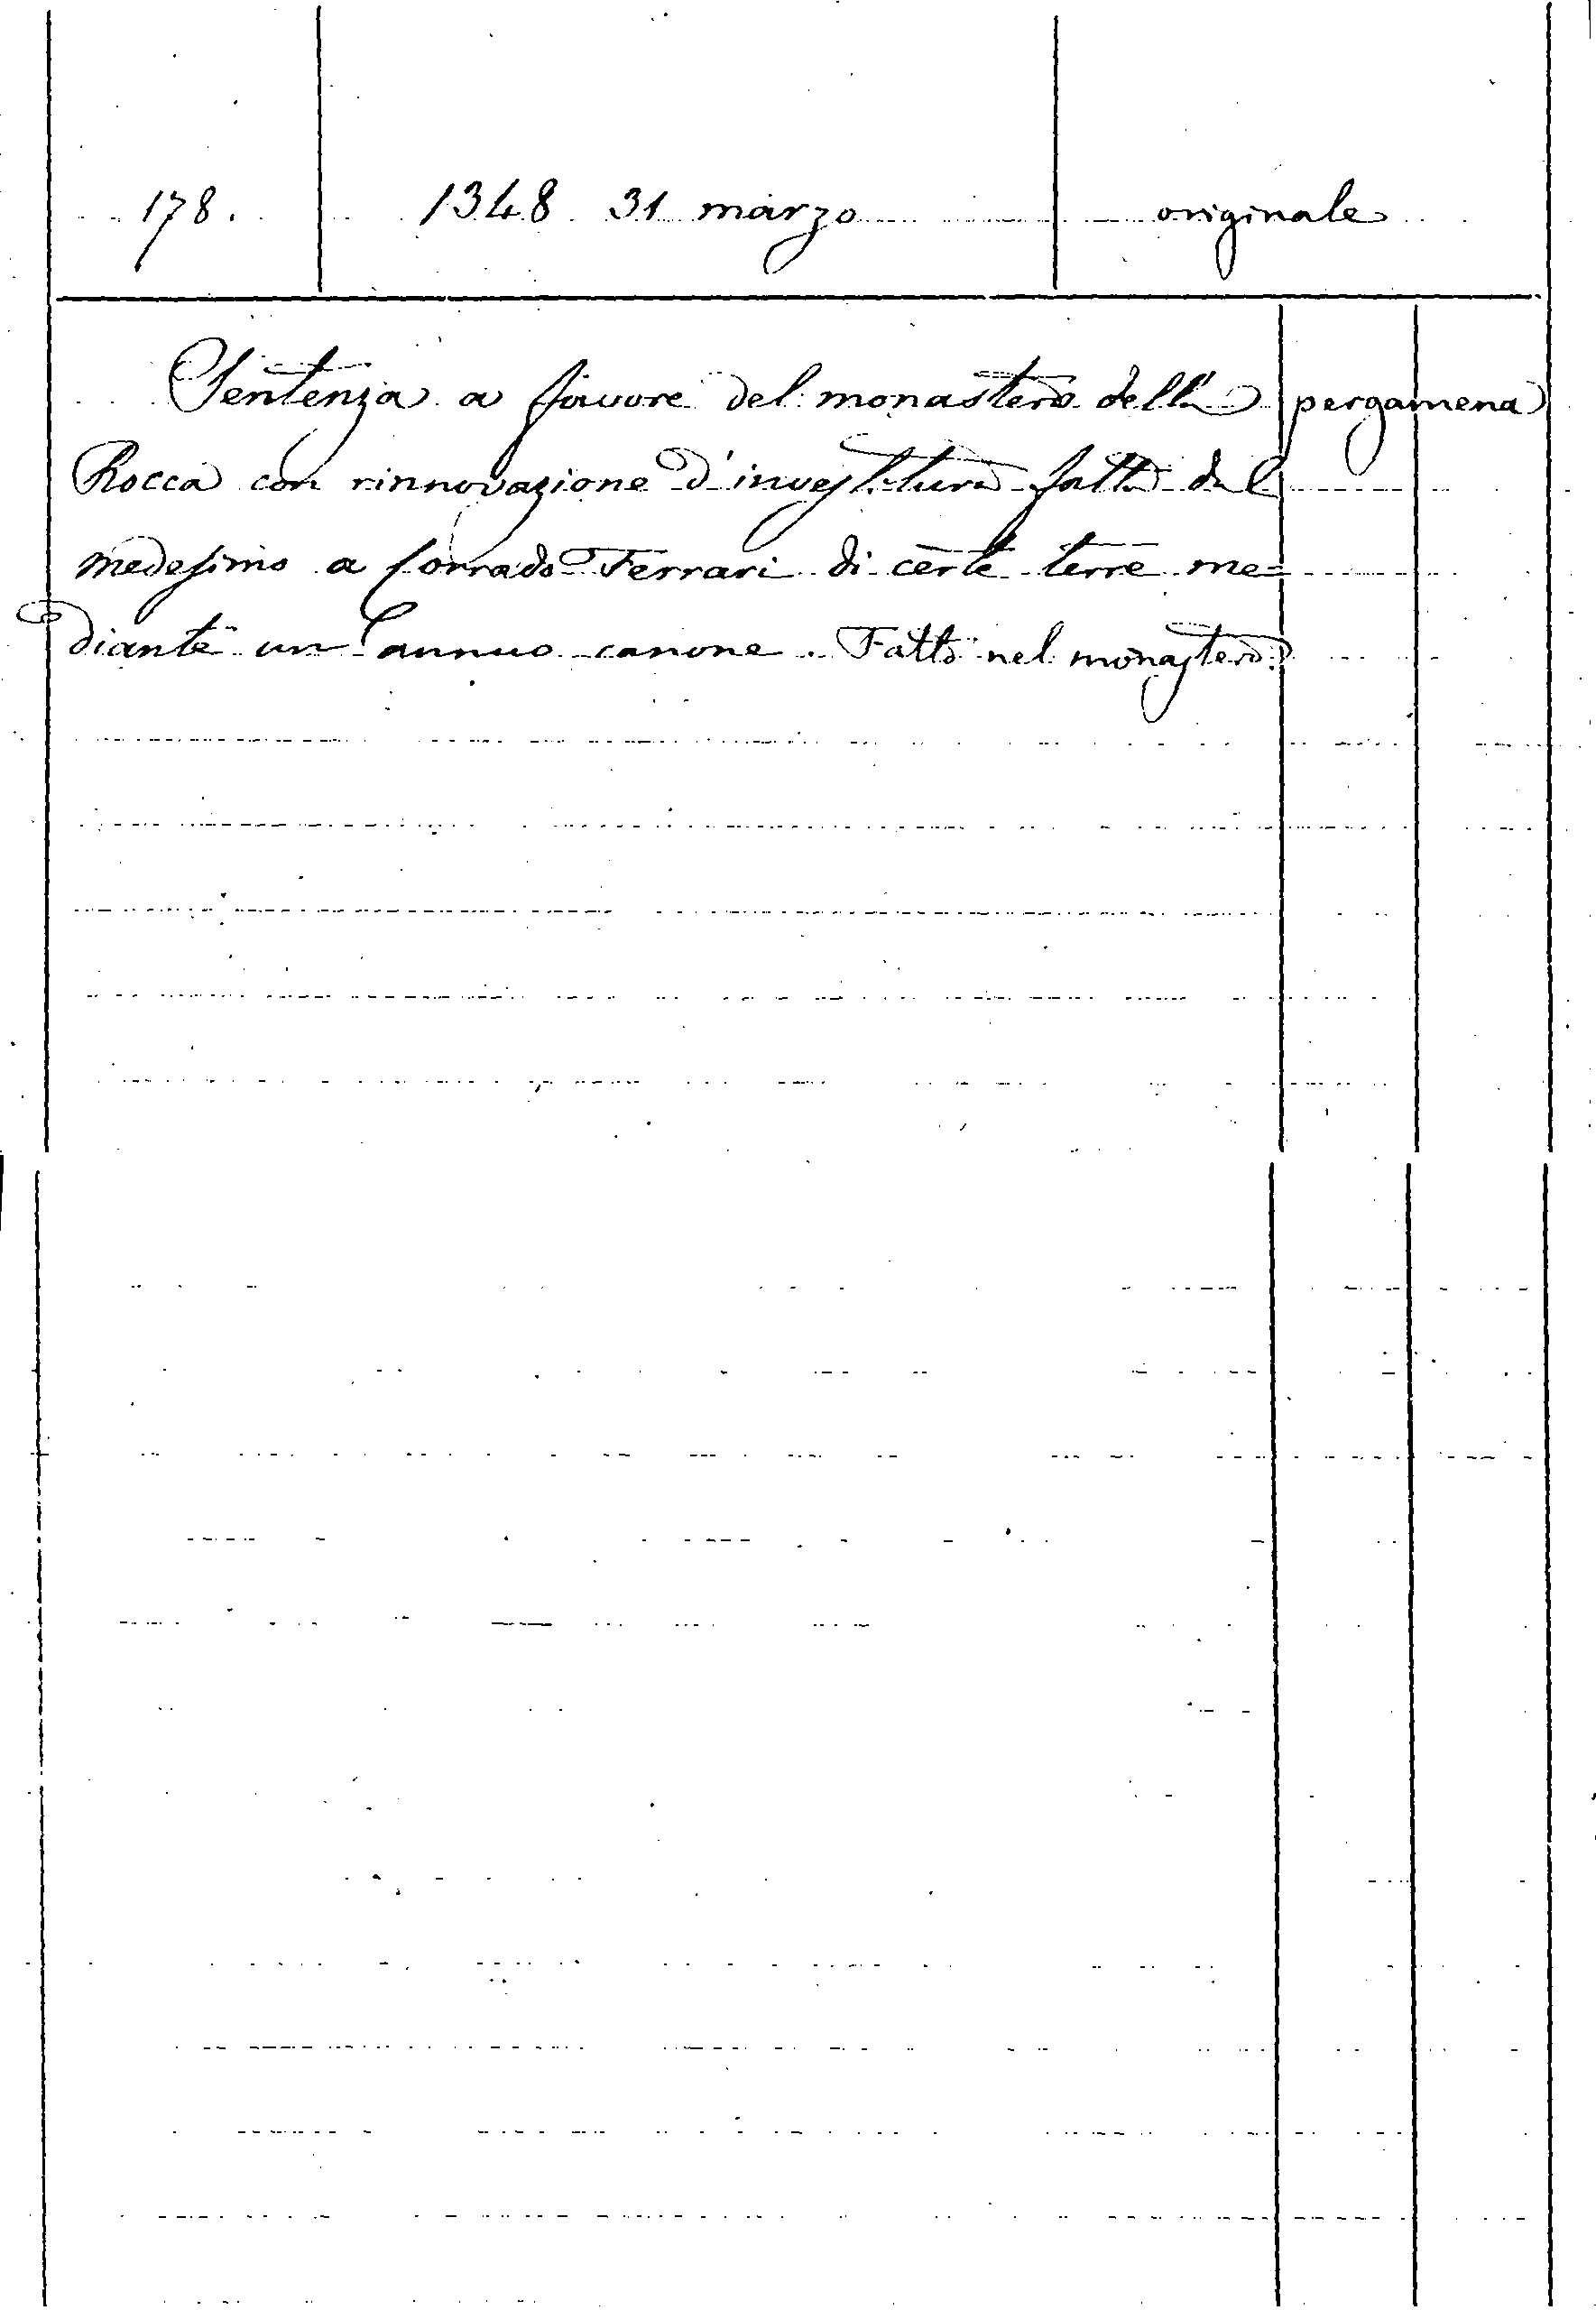 178. 1348 31 marzo originale
Sentenza a favore del monastero della pergamena
Rocca con rinnovazione d'investitura fatta dal
medesimo a Corrado Ferrari di certe terre me=
diante un annuo canone. Fatto nel monastero.